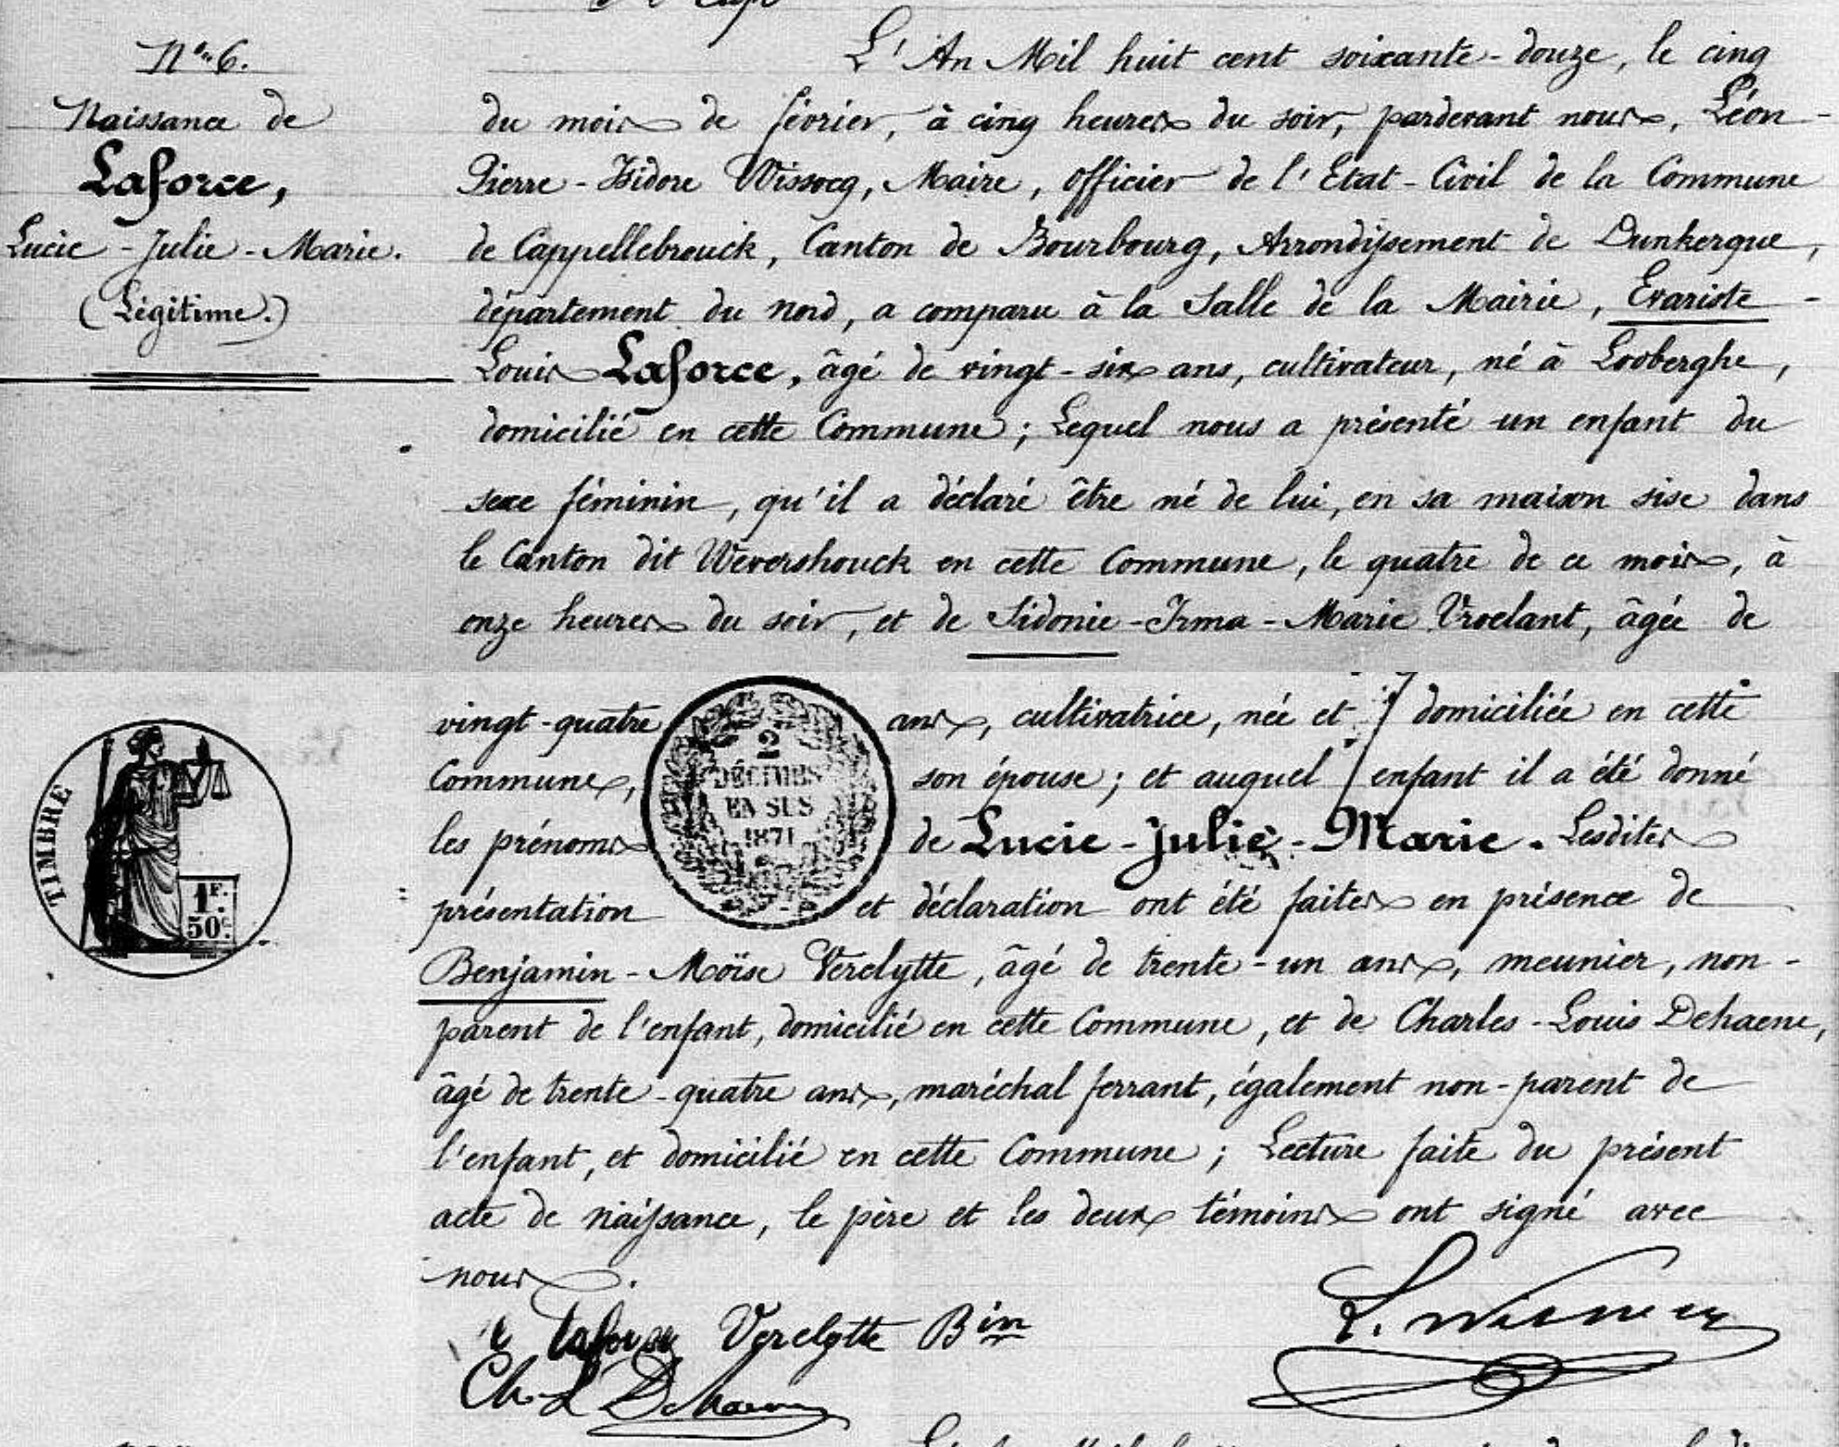 N° 6.
Naissance de
Laforce,
Lucie - Julie - Marie.
(Légitime.)
L'An Mil huit cent soixante-douze, le cinq
du mois de février, à cinq heures du soir, pardevant nous, Léon-
Pierre-Isidore Wissocq, Maire, officier de l'Etat-Civil de la Commune
de Cappellebrouck, Canton de Bourbourg, Arrondissement de Dunkerque,
département du nord, a comparu à la Salle de la Mairie, Evariste-
Louis Laforce, âgé de vingt-six ans, cultivateur, né à Looberghe,
domicilié en cette Commune; Lequel nous a présenté un enfant du
sexe féminin, qu'il a déclaré être né de lui, en sa maison sise dans
le Canton dit Wevershouck en cette Commune, le quatre de ce mois, à
onze heures du soir, et de Sidonie-Irma-Marie Vroelant, âgée de
vingt-quatre ans, cultivatrice, née et domiciliée en cette
Commune, son épouse; et auquel enfant il a été donné
les prénoms de Lucie-Julie-Marie. Lesdites
présentation et déclaration ont été faites en présence de
Benjamin-Moïse Verclytte, âgé de trente-un ans, meunier, non-
parent de l'enfant, domicilié en cette Commune, et de Charles-Louis Dehaene,
âgé de trente-quatre ans, maréchal ferrant, également non-parent de
l'enfant, et domicilié en cette Commune; Lecture faite du présent
acte de naissance, le père et les deux témoins ont signé avec
nous.
TIMBRE
1F.
50c.
2
DÉCIMES
EN SUS
1871
Laforce Verclytte Bin
Ch. L Dehaene
L. Wissocq